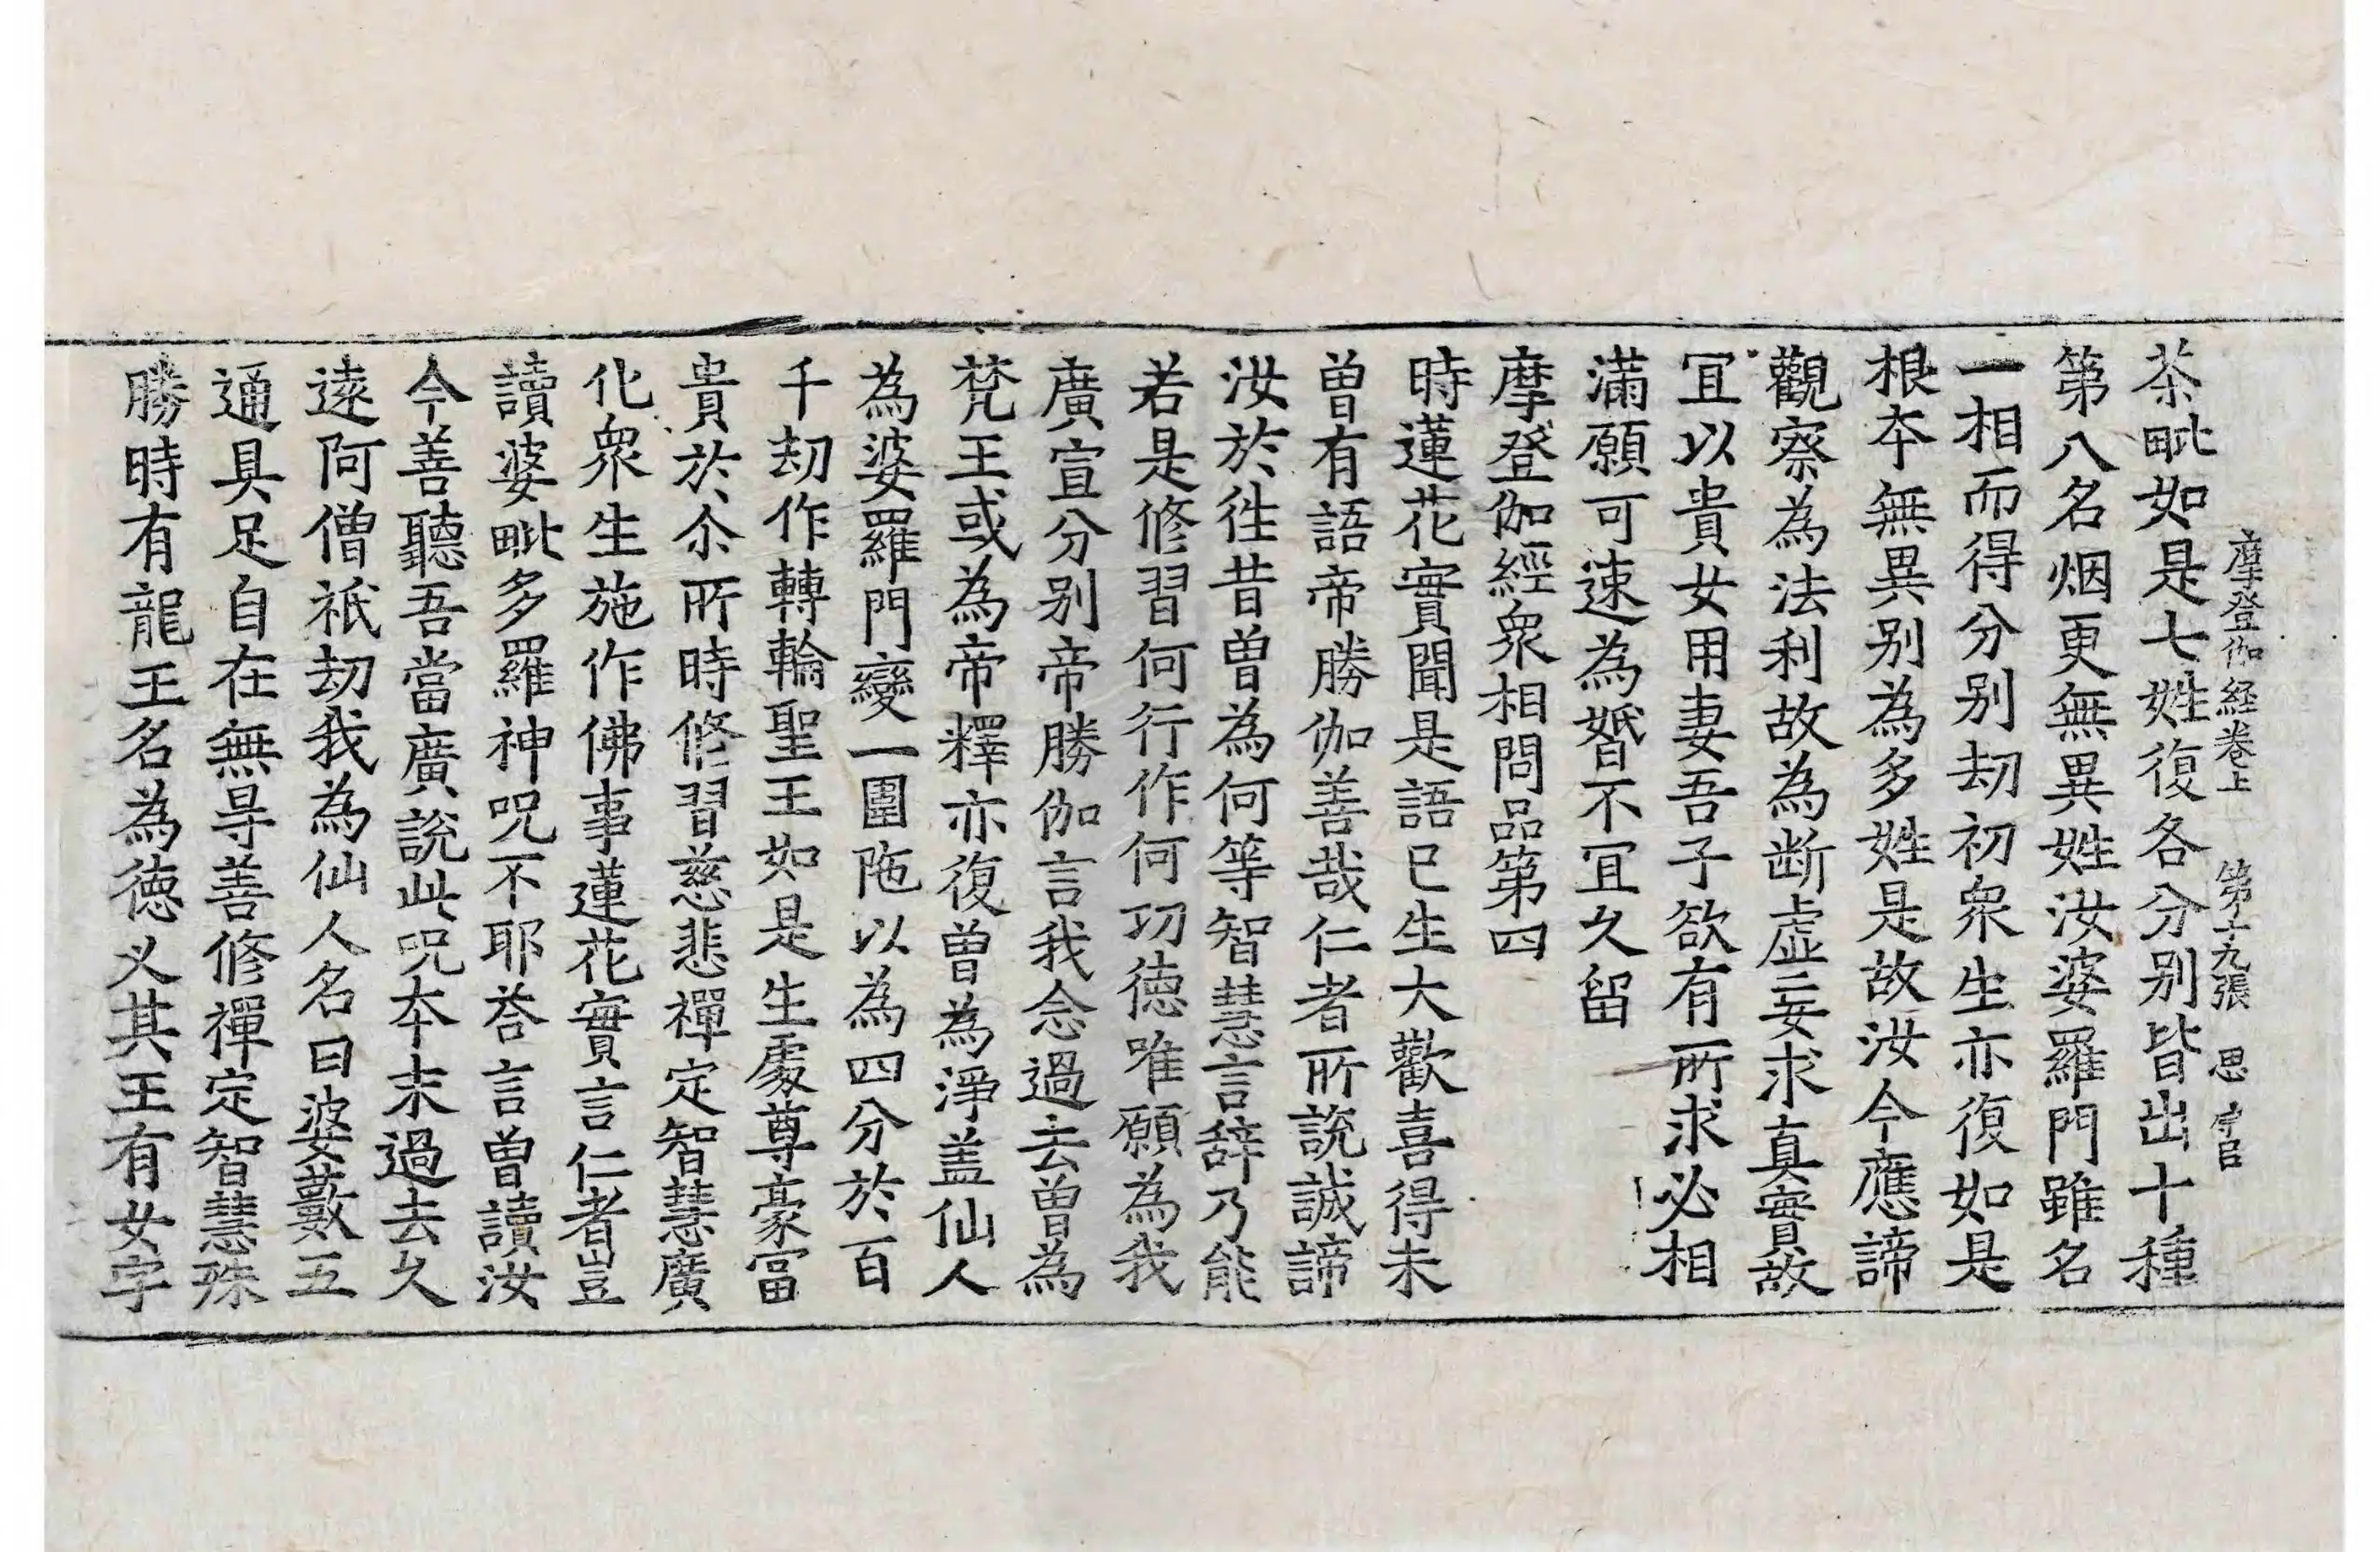 摩登伽経卷上 第十九張 思
茶毗如是七姓復各分別皆出十種
第八名烟更無異姓汝婆羅門雖名
一相而得分別劫初衆生亦復如是
根本無異別為多姓是故汝今應諦
觀察為法利故為断虛妄求真實故
冝以貴女用妻吾子欲有所求必相
滿願可速為婚不冝久留
摩登伽經衆相問品第四
時蓮花實聞是語已生大歡喜得未
曾有語帝勝伽善哉仁者所說誠諦
汝於徃昔曾為何等智慧言辞乃能
若是修習何行作何功徳唯願為我
廣宣分別帝勝伽言我念過去曾為
梵王或為帝釋亦復曾為淨盖仙人
為婆羅門變一圍陁以為四分於百
千劫作轉輪聖王如是生處尊豪冨
貴於尒所時修習慈悲禪定智慧廣
化衆生施作佛事蓮花實言仁者豈
讀婆毗多羅神呪不耶荅言曾讀汝
今善聽吾當廣說此呪本末過去久
遠阿僧祇劫我為仙人名曰婆藪五
通具足自在無㝵善修禪定智慧殊
勝時有龍王名為徳叉其王有女字